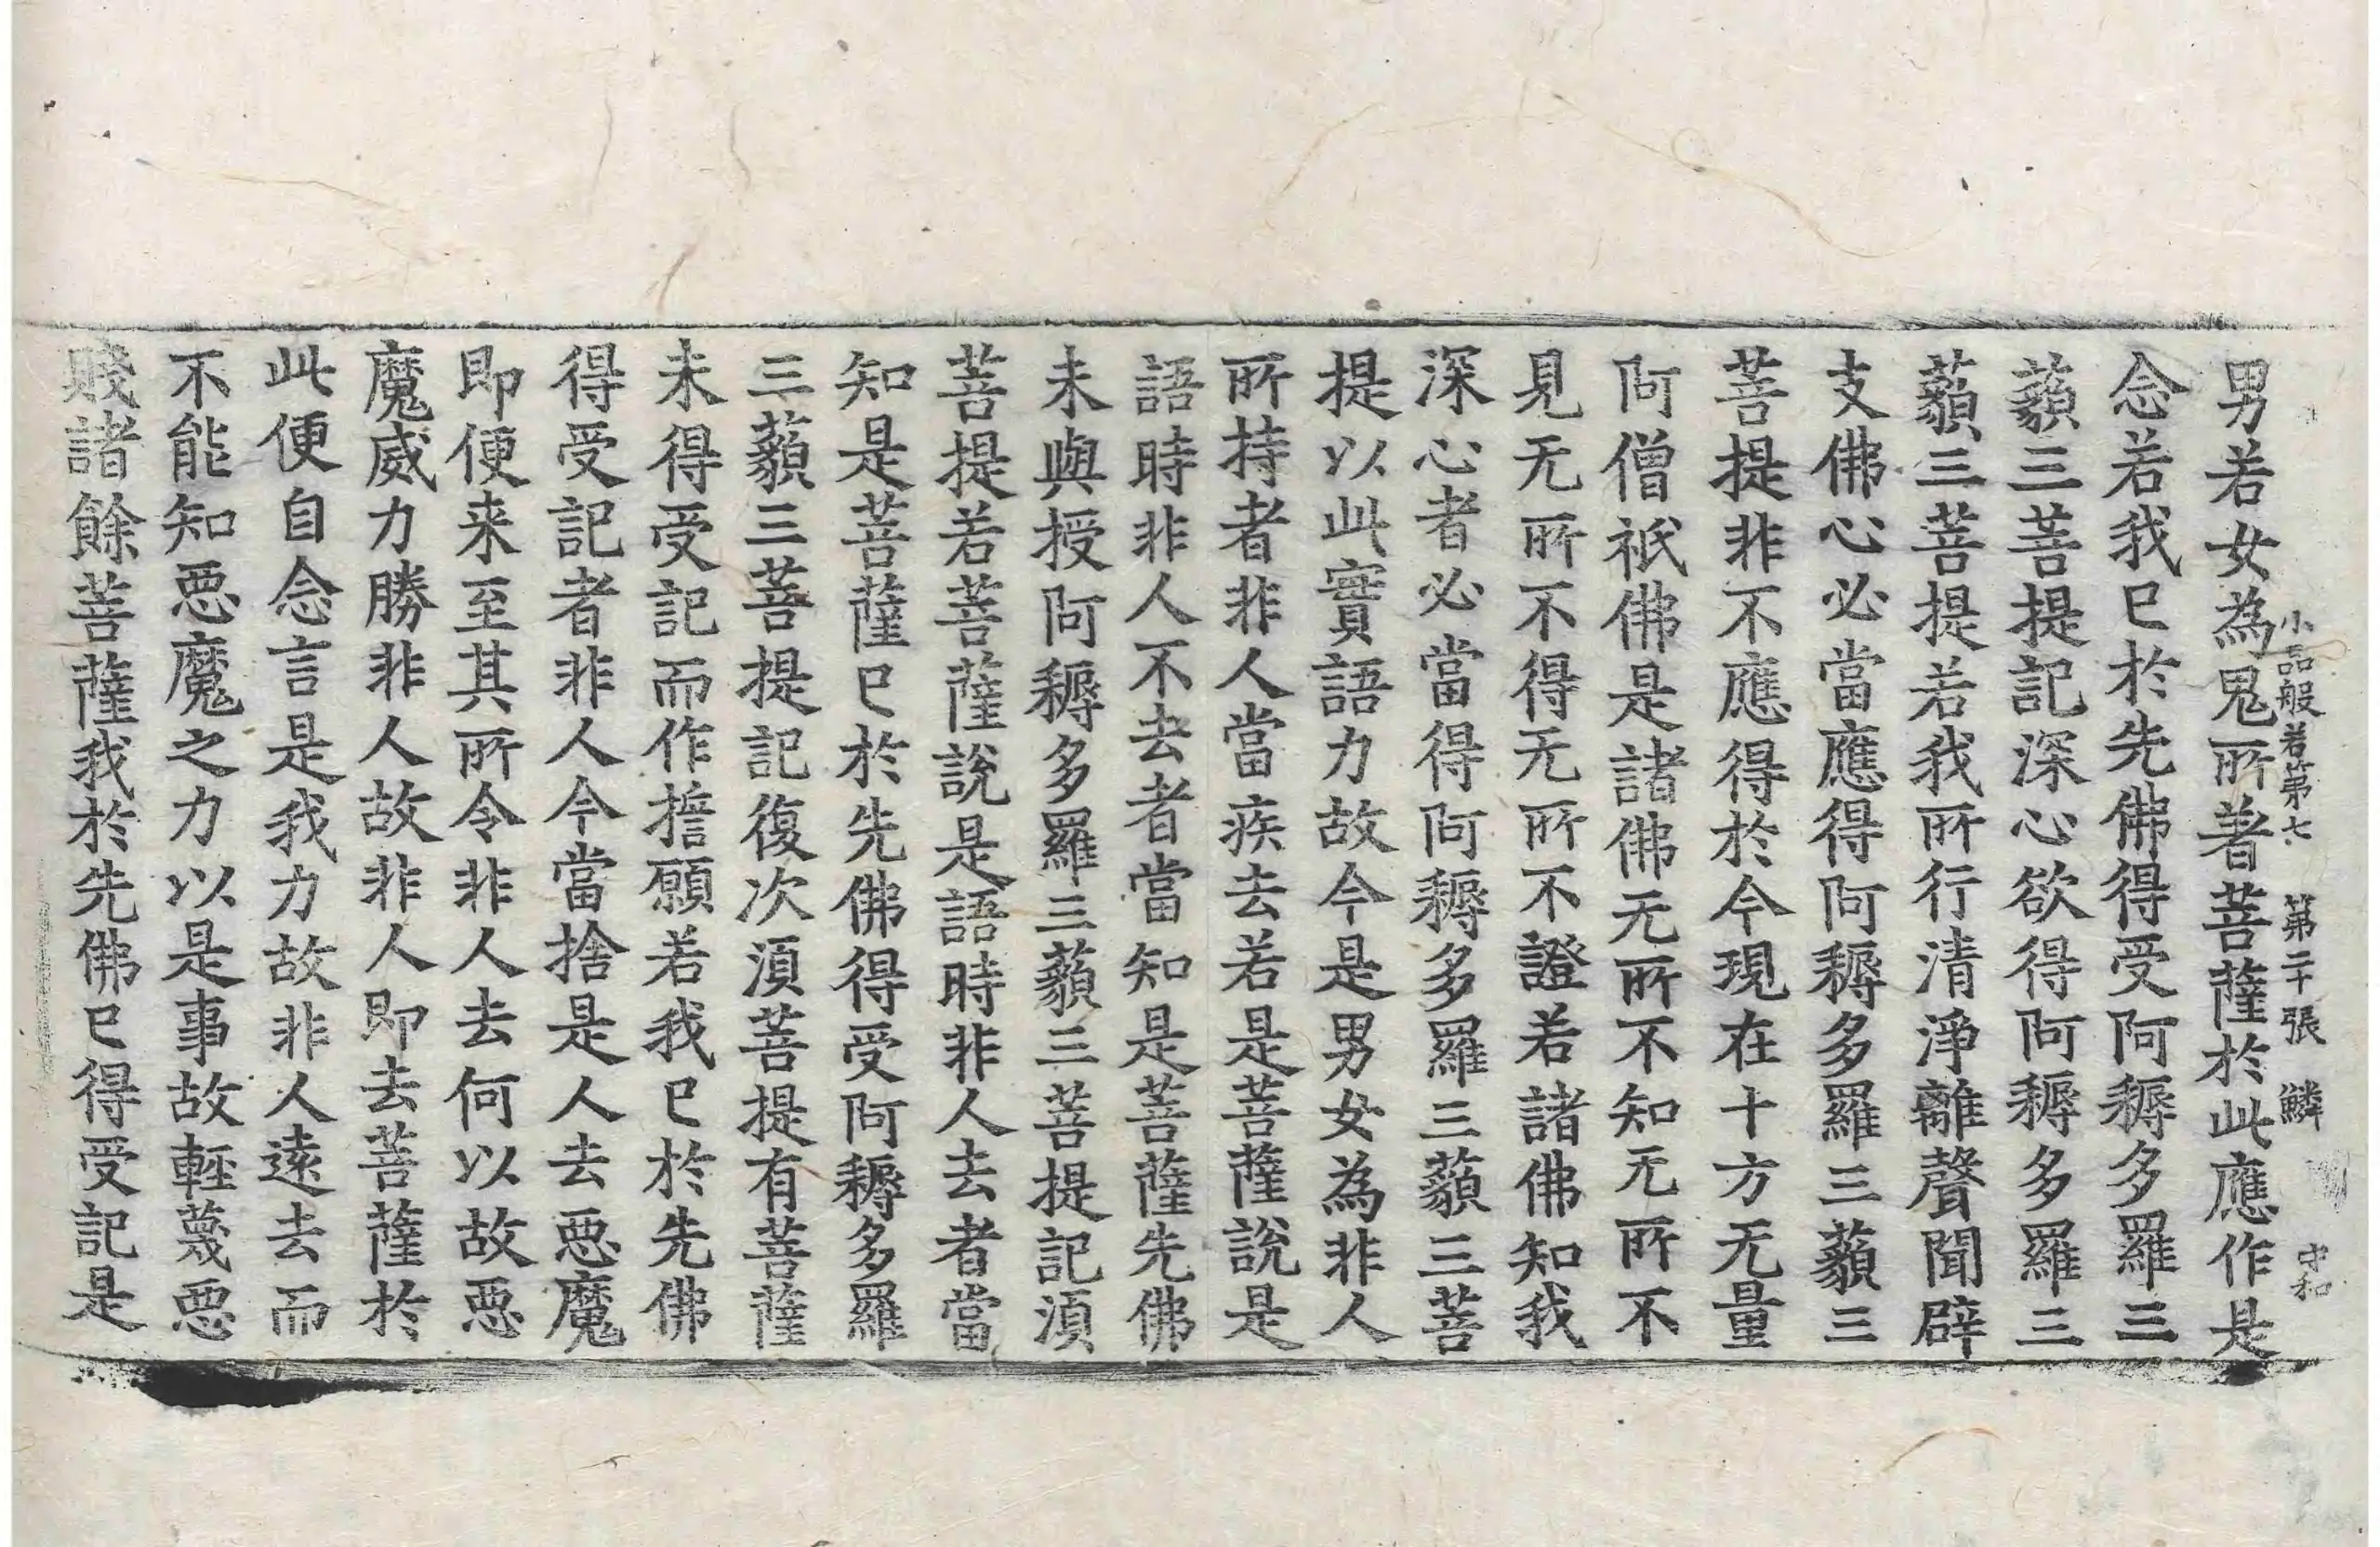 小品般若第七　第二十張　鱗　中和
男若女為鬼所著菩薩於此應作是
念若我已於先佛得受阿耨多羅三
藐三菩提記深心欲得阿耨多羅三
藐三菩提若我所行清淨離聲聞辟
支佛心必當應得阿耨多羅三藐三
菩提非不應得於今現在十方无量
阿僧祇佛是諸佛无所不知无所不
見无所不得无所不證若諸佛知我
深心者必當得阿耨多羅三藐三菩
提以此實語力故今是男女為非人
所持者非人當疾去若是菩薩說是
語時非人不去者當知是菩薩先佛
未與授阿耨多羅三藐三菩提記湏
菩提若菩薩說是語時非人去者當
知是菩薩已於先佛得受阿耨多羅
三藐三菩提記復次湏菩提有菩薩
未得受記而作誓願若我已於先佛
得受記者非人今當捨是人去惡魔
即便来至其所令非人去何以故惡
魔威力勝非人故非人即去菩薩於
此便自念言是我力故非人遠去而
不能知惡魔之力以是事故輕蔑惡
賤諸餘菩薩我於先佛已得受記是